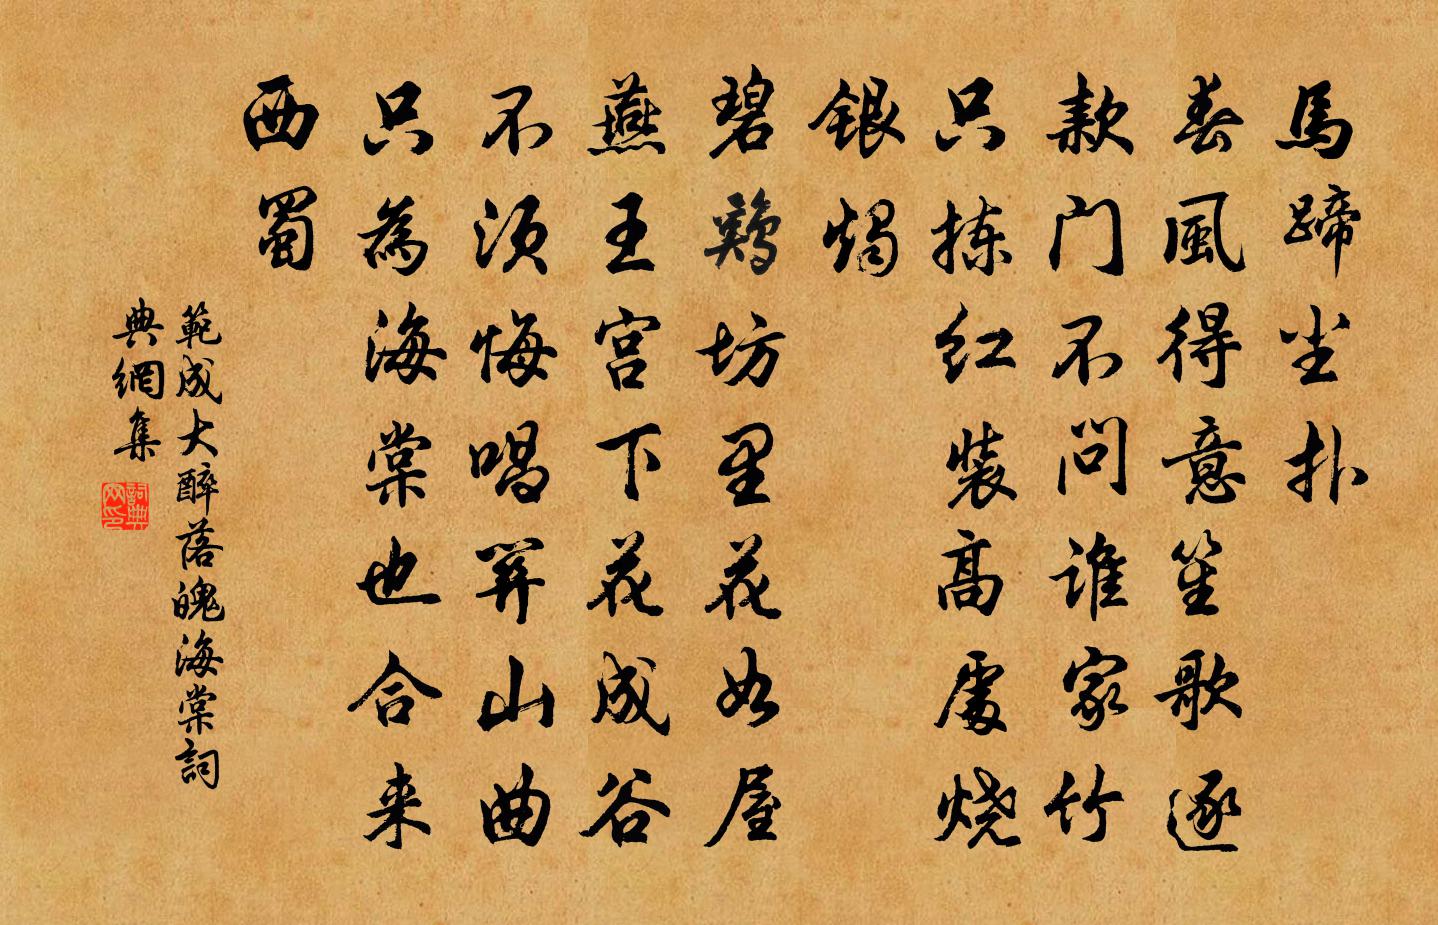 馬蹄尘扑
春風得意笙歌逐
款门不问谁家竹
只拣红裝高處烧
銀燭
碧鷄坊里花如屋
燕王宫下花成谷
不须悔唱关山曲
只為海棠也合来
西蜀
範成大醉落魄海棠詞
典網集
詞典
网印